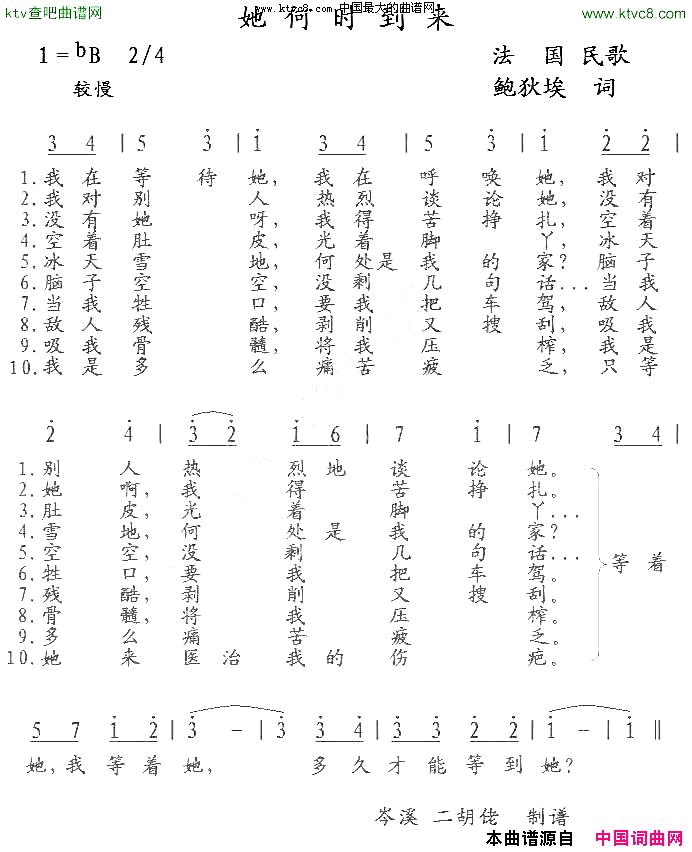 ktv查吧曲谱网
www.ktvc8.com 中国最大的曲谱网
www.ktvc8.com
她何时到来
1=bB 2/4
法国民歌
较慢
鲍狄埃 词
3 4 | 5 3 | 1 3 4 | 5 3 | 1 2 2 |
1.我在等待她,我在呼唤她,我对
2.我对别人热烈谈论她,没有
3.没有她呀,我得苦挣扎,空着
4.空着肚皮,光着脚丫,冰天
5.冰天雪地,何处是我的家?脑子
6.脑子空空,没剩几句话...当我
7.当我牲口,要我把车驾,敌人
8.敌人残酷,剥削又搜刮,吸我
9.吸我骨髓,将我压榨,我是
10.我是多么痛苦疲乏,只等
2 4 | 3 2 1 6 | 7 1 | 7 3 4 |
1.别人热烈地谈论她。
2.她啊,我得苦挣扎。
3.肚皮,光着脚丫...
4.雪地,何处是我的家?
5.空空,没剩几句话...
等着
6.牲口,要我把车驾。
7.残酷,剥削又搜刮。
8.骨髓,将我压榨。
9.多么痛苦疲乏。
10.她来医治我的伤疤。
5 7 1 2 | 3 - | 3 3 4 | 3 3 2 2 | 1 - | 1 ‖
她,我等着她,多久才能等到她?
岑溪 二胡佬 制谱
本曲谱源自 中国词曲网